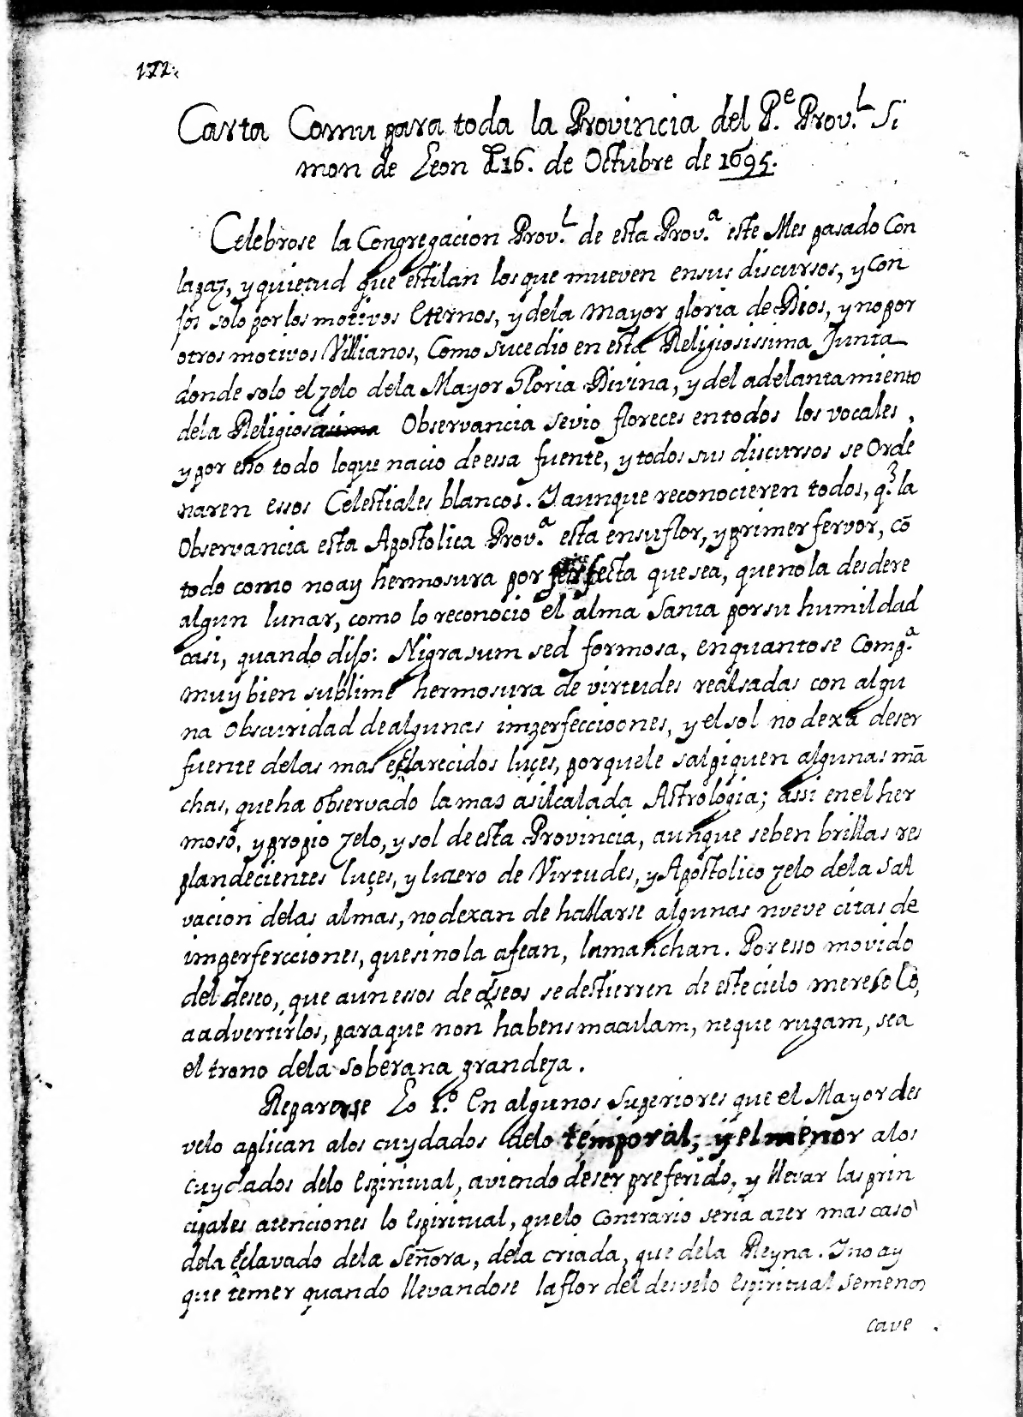 172.
Carta Comu para toda la Provincia del P.e Prov.l Si
mon de Leon d 16. de Octubre de 1695.
Celebrose la Congregacion Prov.l de esta Prov.a este Mes pasado Con
la paz, y quietud que estilan los que mueven en sus discursos, y con
solo por los motivos Eternos, y dela Mayor gloria de Dios, y no por
otros motivos Villianos, Como sucedio en esta Religiosissima Junta
donde solo el zelo dela Mayor Gloria Divina, y del adelantamiento
dela Religiosa Observancia se vio floreces en todos los vocales,
y por esso todo loque nacio de essa fuente, y todos sus discursos se Orde
naren essos Celestiales blancos. Y aunque reconocieren todos, q.e la
Observancia esta Apostolica Prov.a esta en su flor, y primer fervor, cō
todo como no ay hermosura por perfecta que sea, que no la desdere
algun lunar, como lo reconocio el alma Santa por su humildad
casi, quando diso: Nigra sum sed formosa, en quanto se Comp.a
muy bien sublime hermosura de virtudes realsadas con algu
na Obscuridad de algunas imperfeccioones, y el sol no dexa deser
fuente delas mas esclarecidos luçes, porquele salpiquen algunas mā
chas, que ha observado la mas asilcalada Astrologia; assi en el her
moso, y propio zelo, y sol de esta Provincia, aunque se ben brillas res
plandecientes luçes, y luzero de Virtudes, y Apostolico zelo dela Sal
vacion delas almas, no dexan de hallarse algunas nueve citas de
imperfercciones, que sino la afean, lamanchan. Por esso movido
del deseo, que aun essos de aseos se destierren de este cielo
a advertirlos, paraque non habens maculam, neque rugam, sea
el trono dela soberana grandeza.
Reparerse Lo 1.o En algunos Superiores que el Mayor des
velo aplican alos cuydados delo temporal; y el menor alos
cuydados delo Espiritual, aviendo deser preferido, y llevar las prin
cipales atenciones lo Espiritual, quelo Contrario seria azer mas caso
dela Esclavado dela Señora, dela criada, que dela Reyna. Y no ay
que temer quando llevandose la flor del desvelo Espiritual se menos
cave